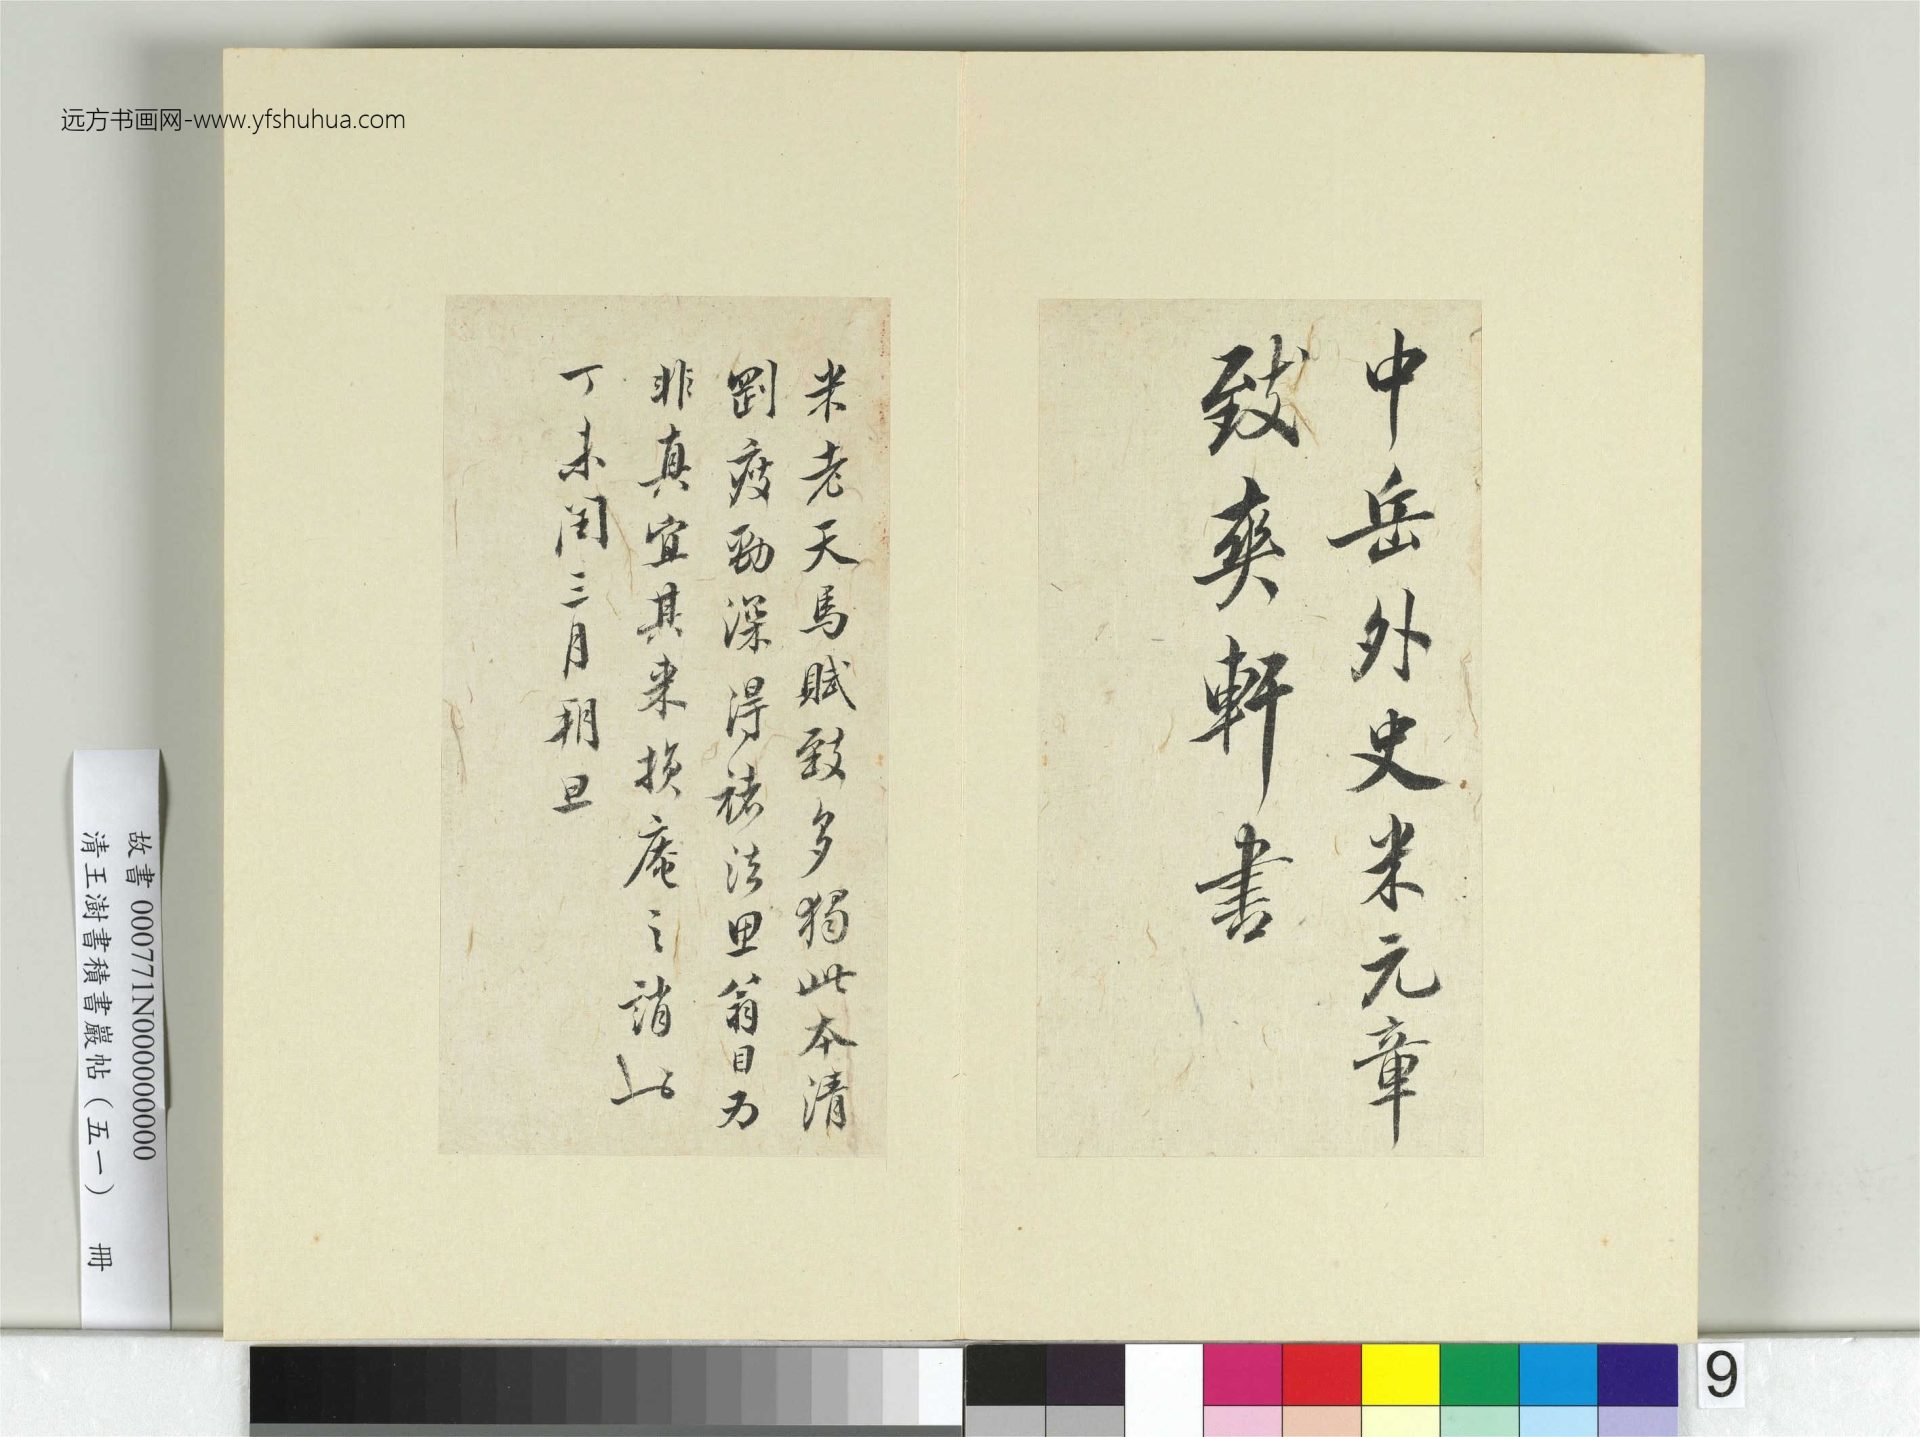 远方书画网-www.yfshuhua.com
中岳外史米元章
致爽軒書
米老天馬賦致多獨此本清
劉疲勁深得褚法思翁目為
非真宜其来損庵之誚也
丁未閏三月朔旦
故書 000771N000000000
清王澍書積書巖帖(五一) 冊
9